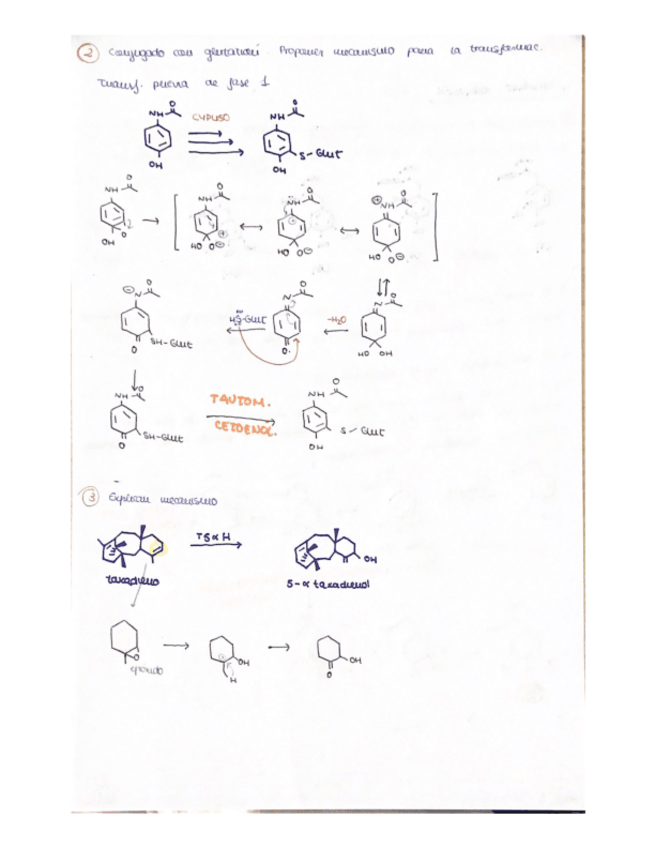 ② Conjugado con glutatión. Proponer mecanismo para la transformac.
Transf. previa de fase 1
NH O CYP450 NH O
S-Glut
OH OH
NH O NH O NH O ⊕ NH O
O
OH HO O⊖ HO O⊖ HO O⊖
⊖ N O N O N O
HS-Glut -H₂O
SH-Glut
O O HO OH
NH O TAUTOM. NH O
SH-Glut CETOENOL. S-Glut
O OH
③ Explicar mecanismo
T5αH
OH
taxadieno 5-α taxadienol
O OH OH
H O
epóxido